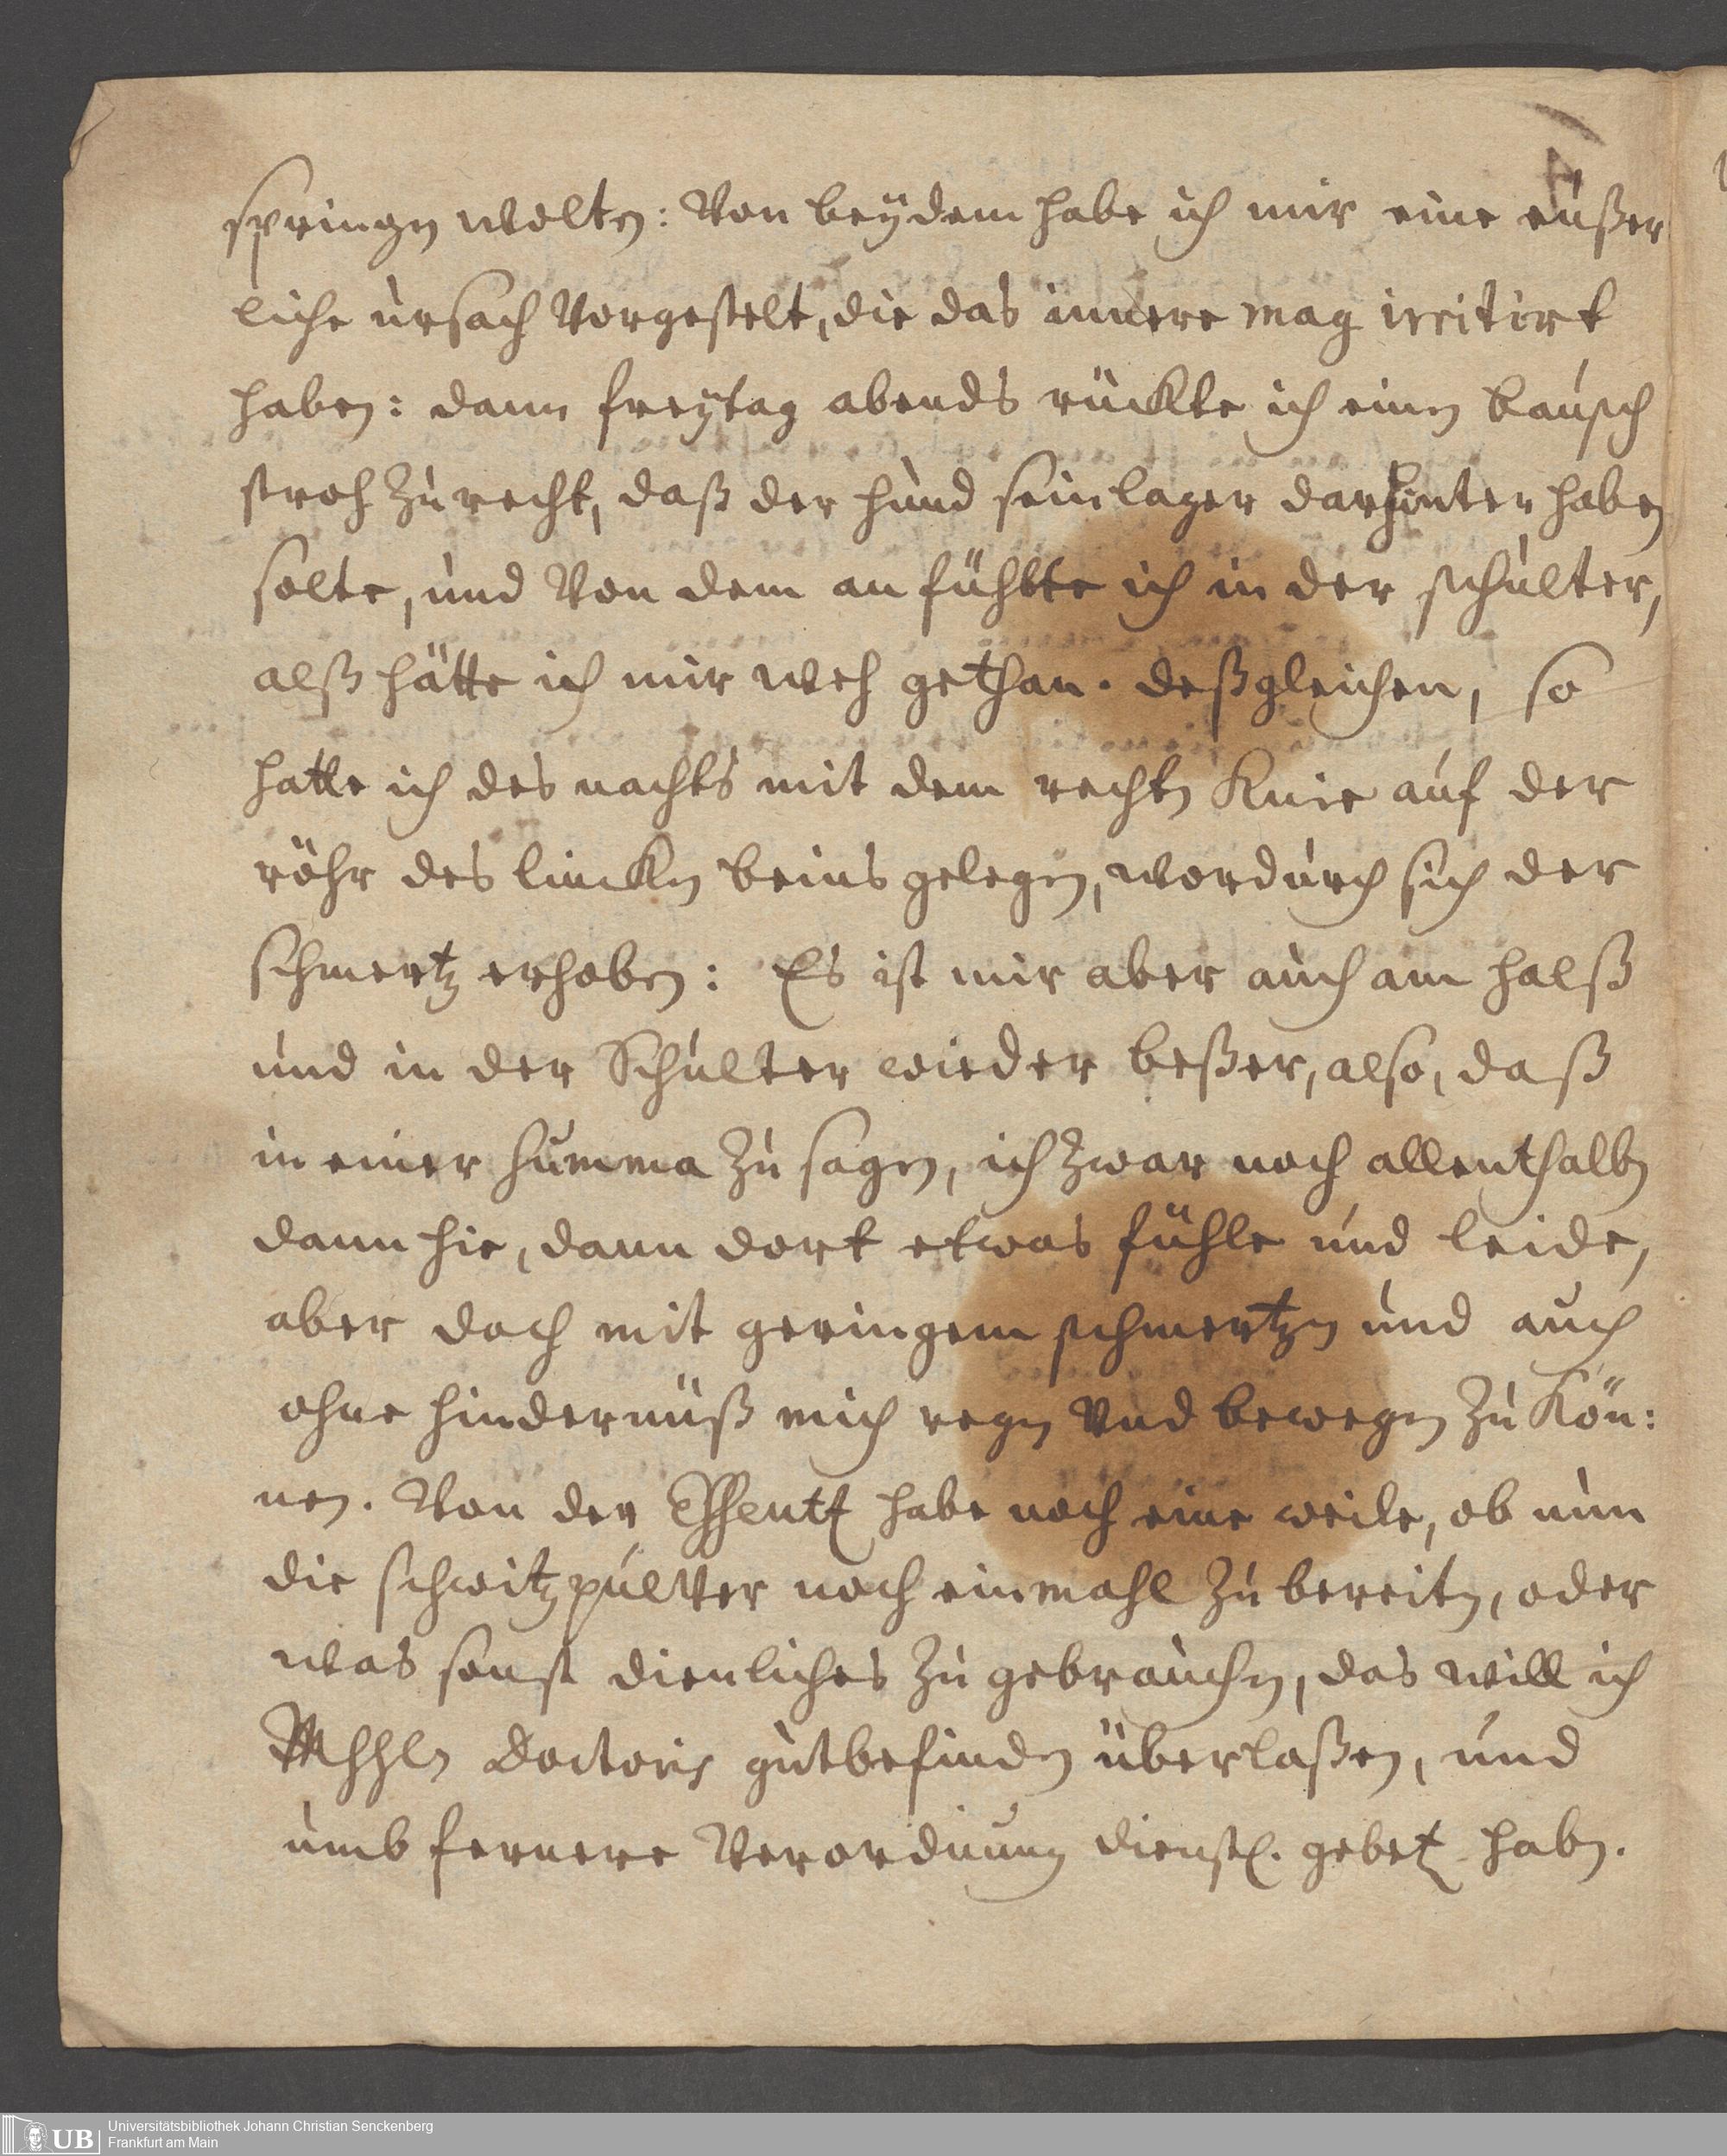 springen wolten: Von beÿdem habe ich mir eine eußer
liche ursach Vorgestelt, die das innere mag irritirt
haben: dann freÿtag abends rückte ich einen bausch
stroh zu recht, daß der hund sein lager darhinter haben
solte, und Von dem an fühlte ich in der schulter,
alß hätte ich mir weh gethan. deßgleichen, so
hatte ich des nachts mit dem rechten Knie auf der
röhr des lincken beins gelegen, wordurch sich der
schmertz erhoben: Es ist mir aber auch am halß
und in der Schulter wieder beßer, also, daß
in einer summa zu sagen, ich zwar noch allenthalben
dann hie, dann dort etwas fühle und leide,
aber doch mit geringem schmertzen und auch
ohne hindernüß mich regen Vnd bewegen zu Kön:
nen. Von der Essentz habe noch eine weile, ob nun
die schwitzpulver noch einmahl zu bereiten, oder
was sonst dienliches zu gebrauchen, das will ich
Doctoris gutbefinden überlaßen, und
umb fernere Verordnung dienstl. gebet haben.
UB
Universitätsbibliothek Johann Christian Senckenberg
Frankfurt am Main